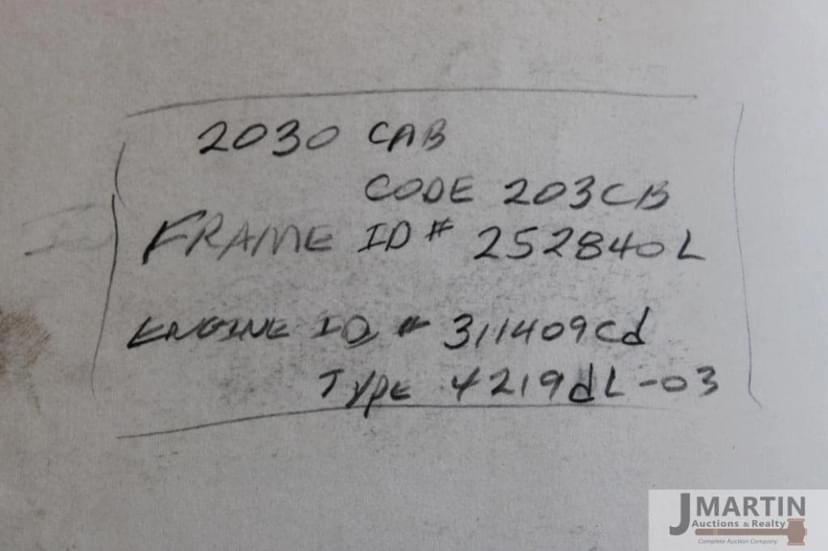 2030 CAB
CODE 203CB
FRAME ID # 252840L
ENGINE ID # 311409Cd
TYPE 4219dL-03
JMARTIN
Auctions & Realty
Complete Auction Company